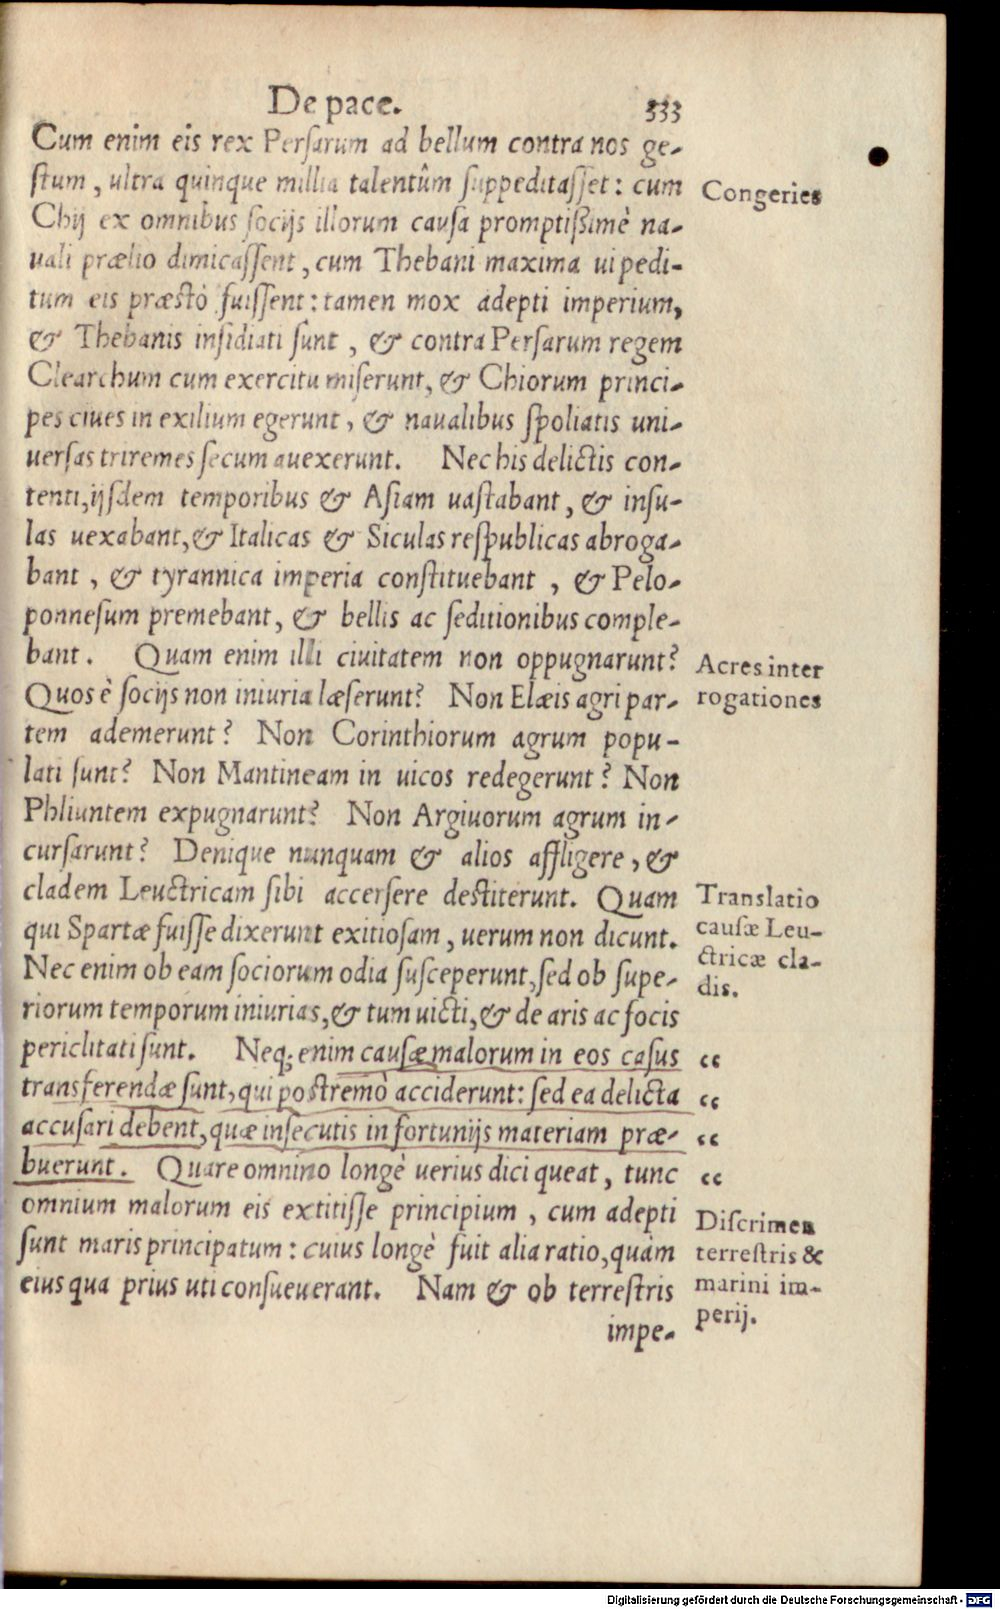 De pace. 333
Cum enim eis rex Persarum ad bellum contra nos ge-
stum, ultra quinque millia talentûm suppeditasset: cum
Congeries
Chij ex omnibus socijs illorum causa promptissimè na-
uali prælio dimicassent, cum Thebani maxima ui pedi-
tum eis præstò fuissent: tamen mox adepti imperium,
& Thebanis insidiati sunt, & contra Persarum regem
Clearchum cum exercitu miserunt, & Chiorum princi-
pes ciues in exilium egerunt, & naualibus spoliatis uni-
uersas triremes secum auexerunt. Nec his delictis con-
tenti, ijsdem temporibus & Asiam uastabant, & insu-
las uexabant, & Italicas & Siculas respublicas abroga-
bant, & tyrannica imperia constituebant, & Pelo-
ponnesum premebant, & bellis ac seditionibus comple-
bant. Quam enim illi ciuitatem non oppugnarunt?
Acres inter
Quos è socijs non iniuria læserunt? Non Elæis agri par-
rogationes
tem ademerunt? Non Corinthiorum agrum popu-
lati sunt? Non Mantineam in uicos redegerunt? Non
Phliuntem expugnarunt? Non Argiuorum agrum in-
cursarunt? Denique nunquam & alios affligere, &
cladem Leuctricam sibi accersere destiterunt. Quam
Translatio
qui Spartæ fuisse dixerunt exitiosam, uerum non dicunt.
causæ Leu-
Nec enim ob eam sociorum odia susceperunt, sed ob supe-
ctricæ cla-
dis.
riorum temporum iniurias, & tum uicti, & de aris ac focis
periclitati sunt. Neq; enim causæ malorum in eos casus
“
transferendæ sunt, qui postremò acciderunt: sed ea delicta
“
accusari debent, quæ insecutis infortunijs materiam præ-
“
buerunt. Quare omnino longè uerius dici queat, tunc
“
omnium malorum eis extitisse principium, cum adepti
Discrimen
sunt maris principatum: cuius longè fuit alia ratio, quàm
terrestris &
eius qua prius uti consueuerant. Nam & ob terrestris
marini im-
perij.
impe-
Digitalisierung gefördert durch die Deutsche Forschungsgemeinschaft - DFG